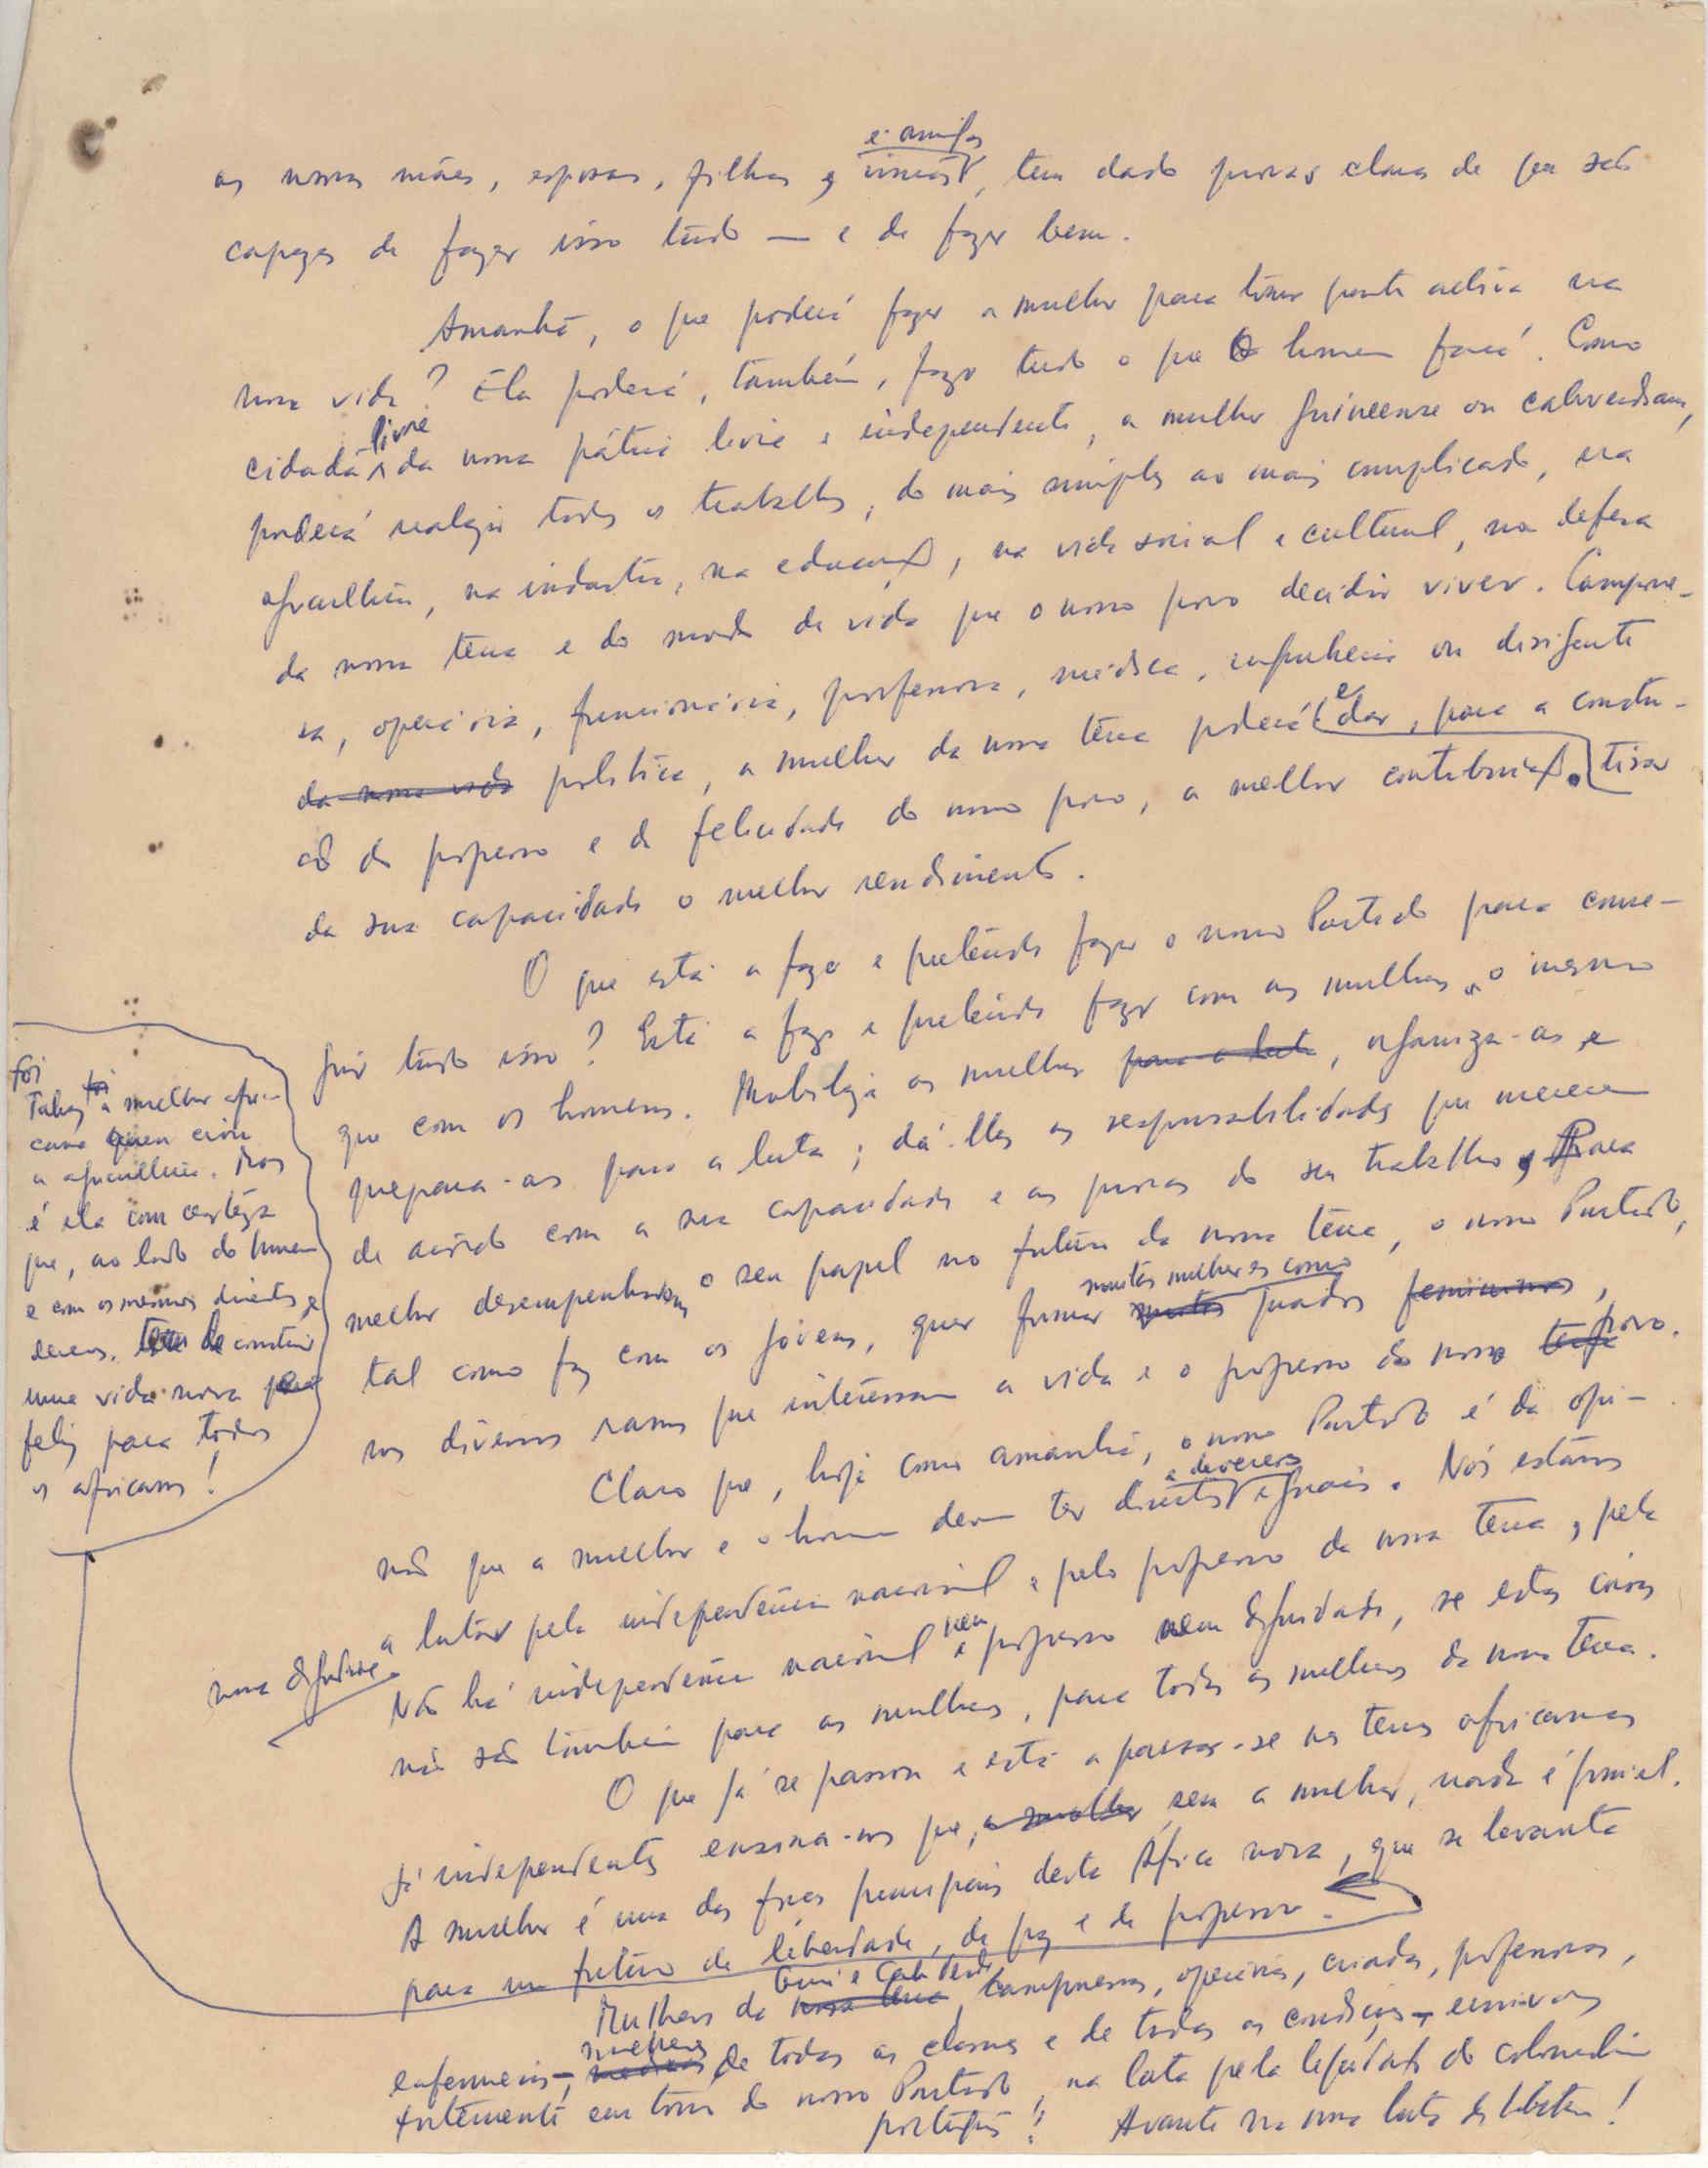 e amigas
as nossas mães, esposas, filhas e irmãs, tem dado provas claras de que são
capazes de fazer isso tudo — e de fazer bem.
Amanhã, o que poderá fazer a mulher para tomar parte activa na
nossa vida? Ela poderá, também, fazer tudo o que o homem fará. Como
livre
cidadã da nossa pátria livre e independente, a mulher guineense ou caboverdeana,
poderá realizar todos os trabalhos, do mais simples ao mais complicado, na
agricultura, na indústria, na educação, na vida social e cultural, na defesa
da nossa terra e do modo de vida que o nosso povo decidir viver. Campone-
sa, operária, funcionária, professora, médica, engenheira ou dirigente
da nossa vida política, a mulher da nossa terra poderá e dar, para a constru-
ção do progresso e da felicidade do nosso povo, a melhor contribuição. tirar
da sua capacidade o melhor rendimento.
O que está a fazer e pretende fazer o nosso Partido para conse-
guir tudo isso? Está a fazer e pretende fazer com as mulheres o mesmo
que com os homens. Mobiliza as mulheres para a luta, organiza-as e
prepara-as para a luta; dá-lhes as responsabilidades que merecem
de acordo com a sua capacidade e as provas do seu trabalho, Para
melhor desempenharem o seu papel no futuro da nossa terra, o nosso Partido,
muitas mulheres como
tal como faz com os jovens, quer formar muitos quadros femininos,
nos diversos ramos que interessam a vida e o progresso do nosso terra povo.
Claro que, hoje como amanhã, o nosso Partido é da opi-
e deveres
nião que a mulher e o homem devem ter direitos iguais. Nós estamos
a lutar pela independência nacional e pelo progresso da nossa terra, pela
nossa dignidade.
nem
Não há independência nacional e progresso nem dignidade, se estas coisas
não são também para as mulheres, para todas as mulheres da nossa terra.
O que já se passou e está a passar-se nas terras africanas
já independentes ensina-nos que, a mulher sem a mulher, nada é possível.
A mulher é uma das forças principais desta África nova, que se levanta
para um futuro de liberdade, de paz e de progresso.
Guiné e Cabo Verde
Mulheres da nossa terra, camponesas, operárias, criadas, professoras,
mulheres
enfermeiras, de todas as classes e de todas as condições — enfermeiras
fortemente em torno do nosso Partido, na luta pela liquidação do colonialismo
português! Avante na nossa luta de libertação!
foi
Talvez foi a mulher afri-
cana quem criou
a agricultura. Mas
é ela com certeza
que, ao lado do homem
e com os mesmos direitos e
deveres, tem de construir
uma vida nova
feliz para todos
os africanos!